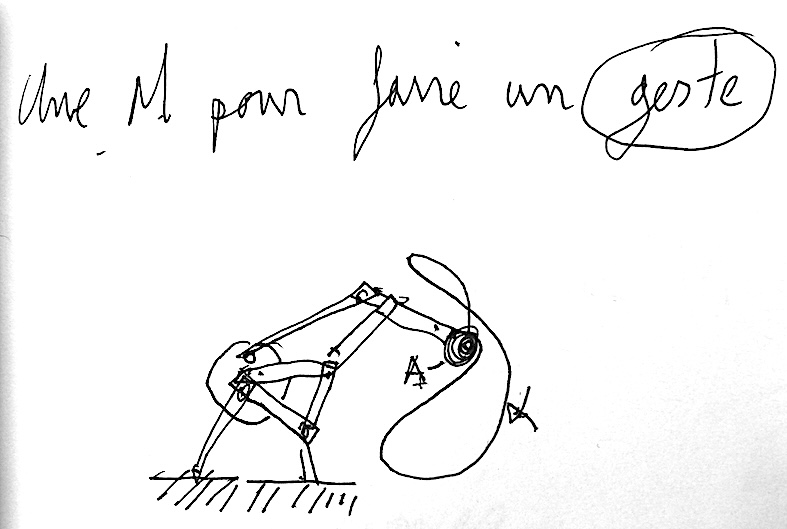 Une M pour faire un geste
A